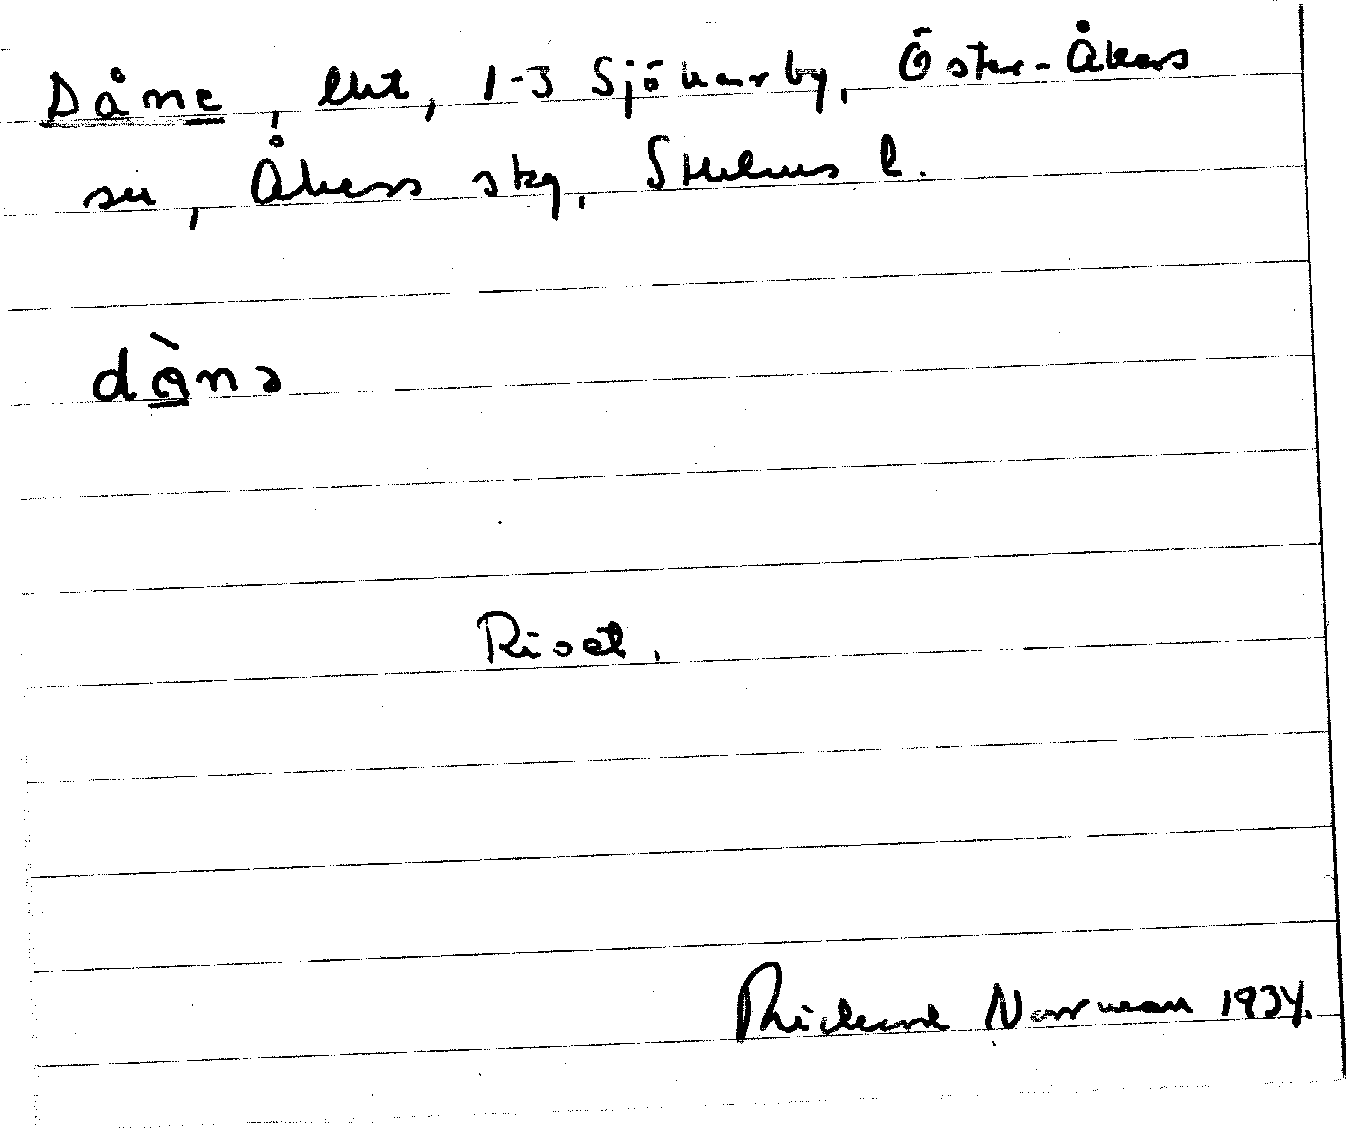 Dåne, lht, 1-3 Sjökarby, Öster-Åkers
sn, Åkers skg, Sthlms l.
då̀nə
Risět.
Rickard Norrman 1934.